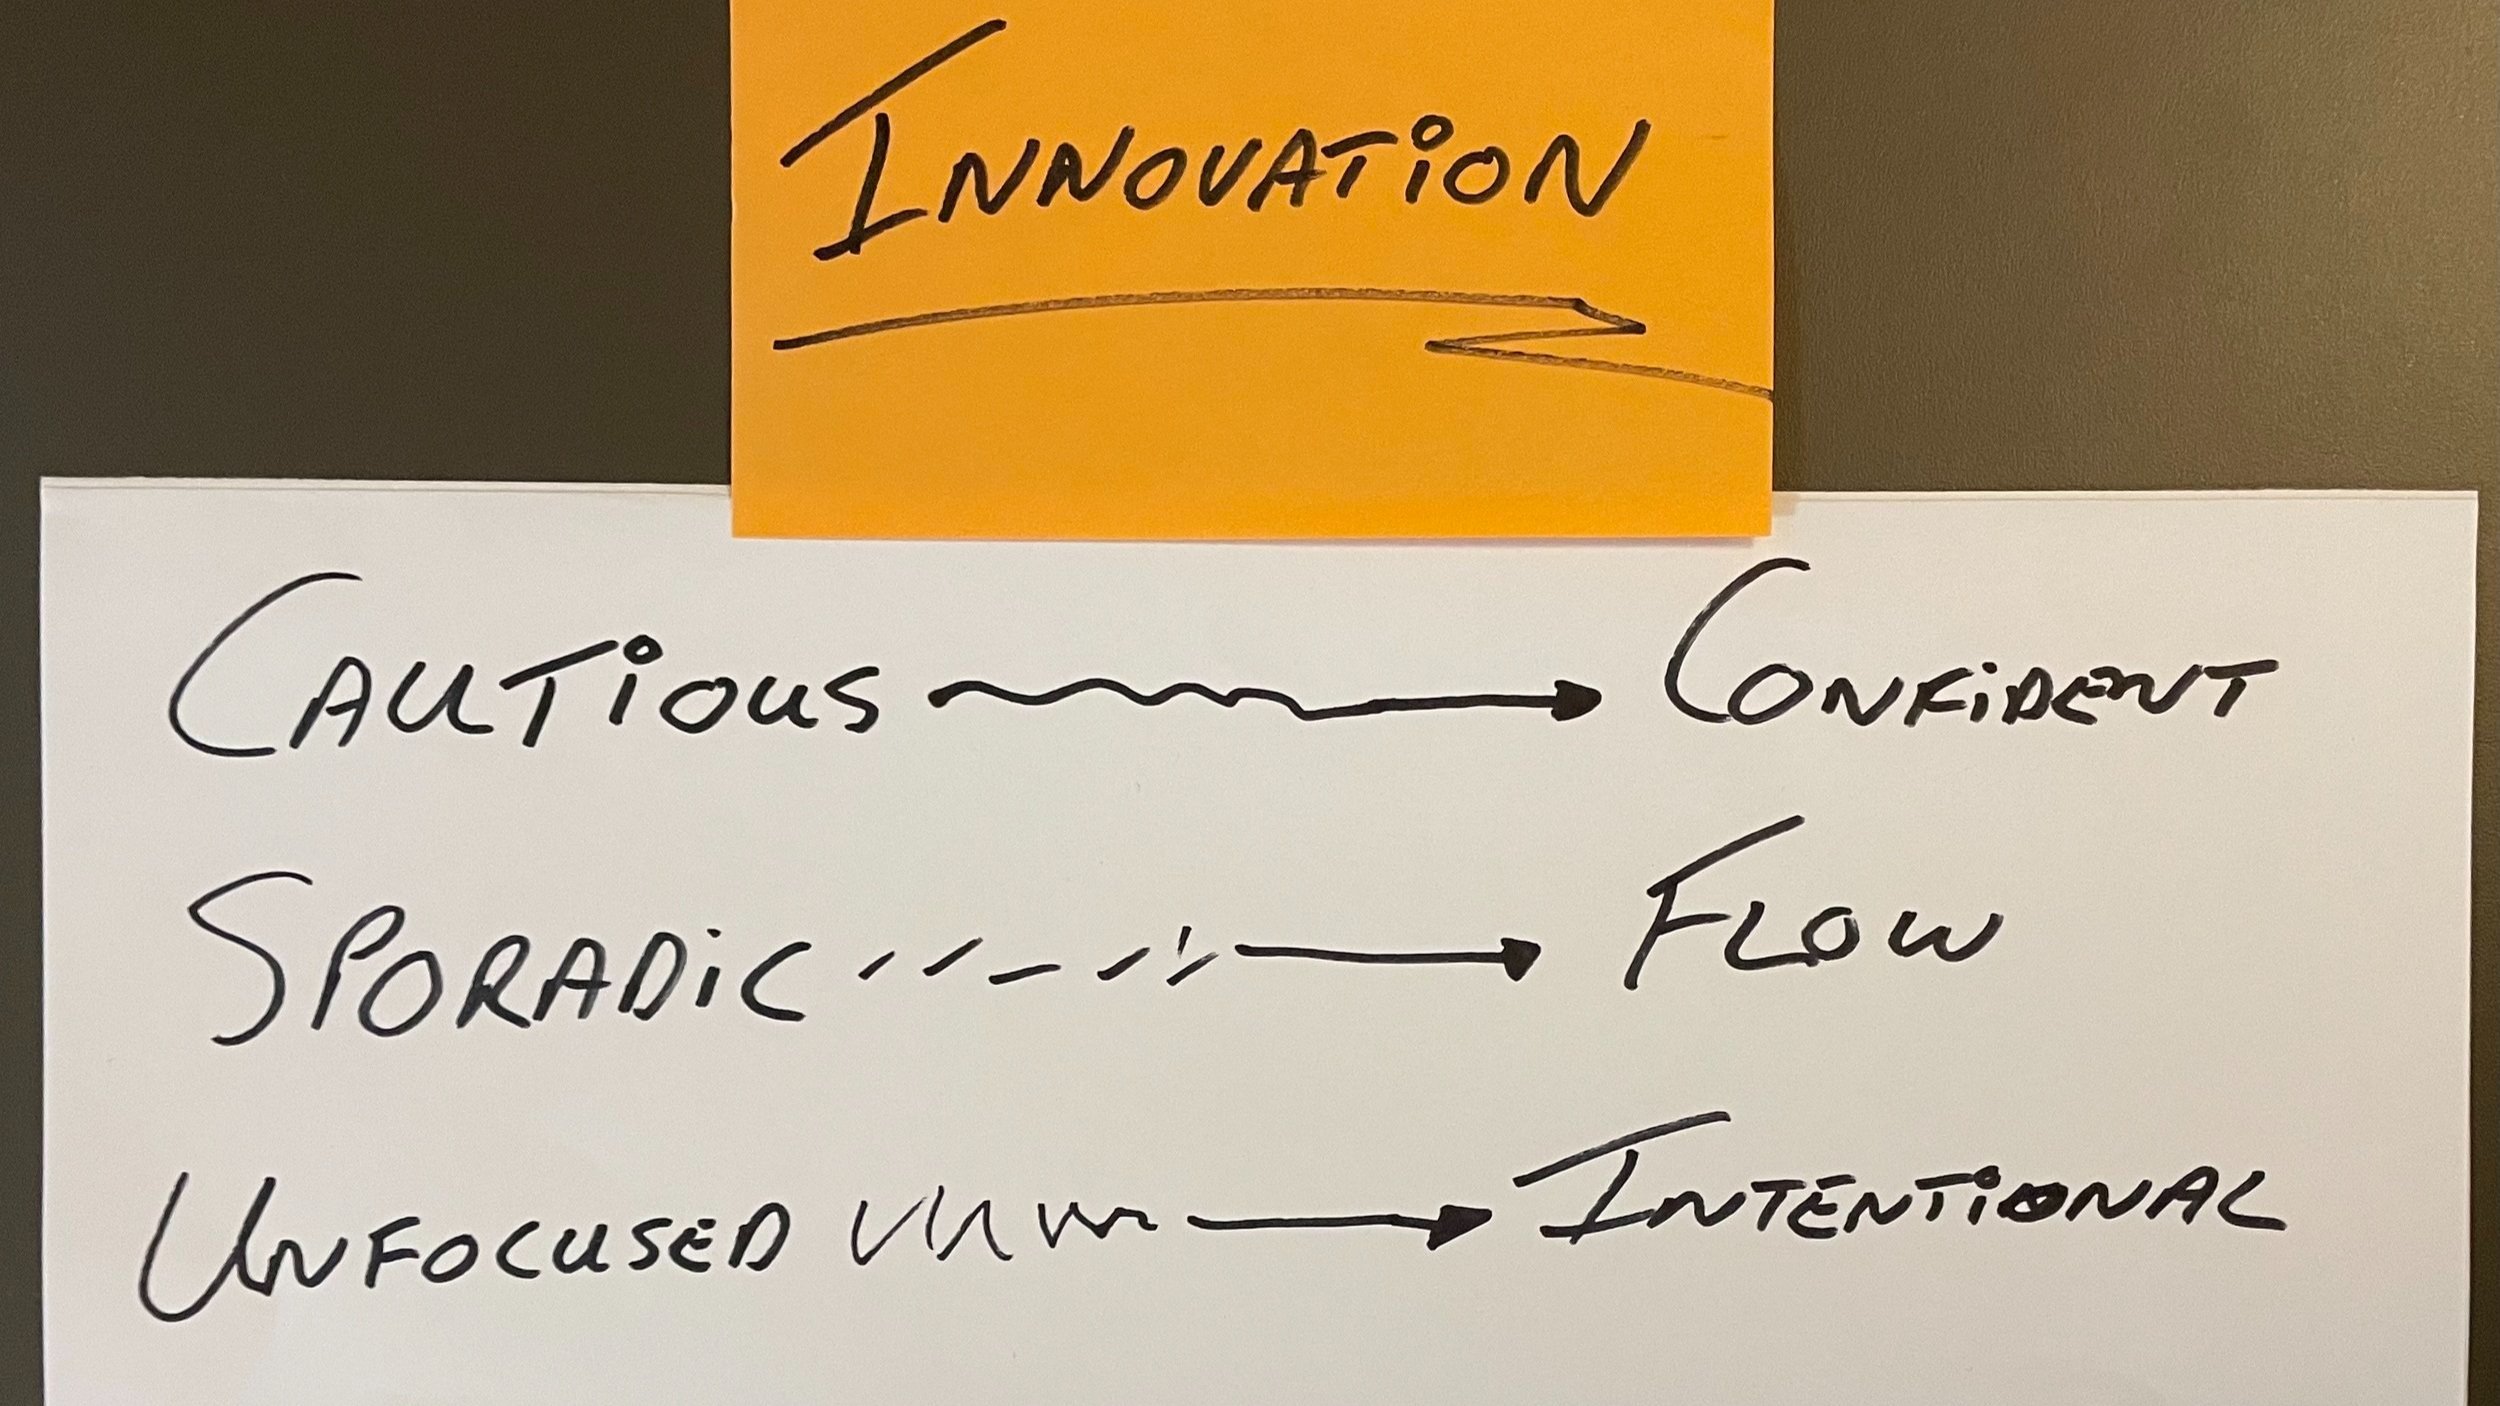 INNOVATION
CAUTIOUS CONFIDENT
SPORADIC FLOW
UNFOCUSED INTENTIONAL